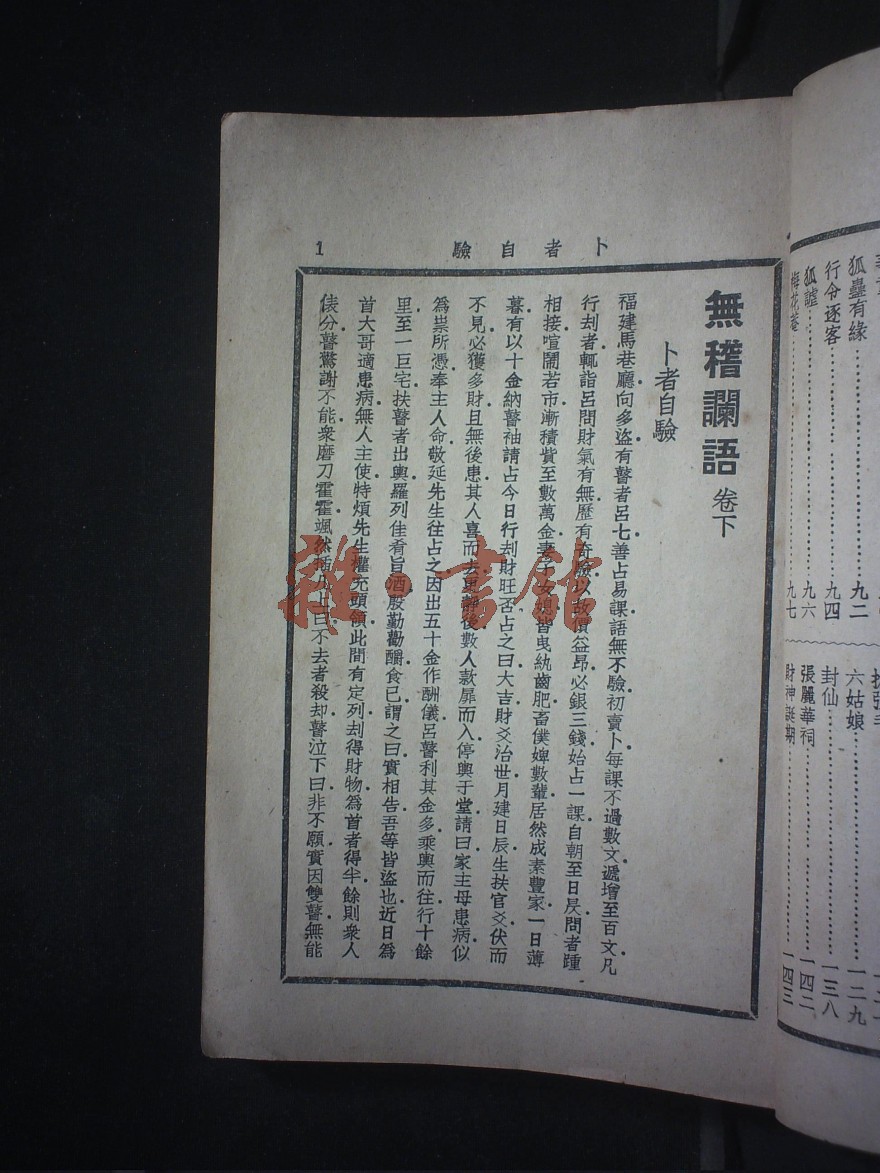 狐蠱有緣……………九二
行令逐客……………九四
狐謔……………九六
六姑娘……………一二九
封仙……………一三八
張麗華祠……………一四二
財神誕期……………一四三
卜者自驗 1
無稽讕語 卷下
卜者自驗
福建馬巷廳向多盜有瞽者呂七善占易課語無不驗初賣卜每課不過數文遞增至百文凡
行刦者輒詣呂問財氣有無歷有奇驗以故價益昂必銀三錢始占一課自朝至日昃問者踵
相接喧鬧若市漸積貲至數萬金妻子女媳皆曳紈齒肥畜僕婢數輩居然成素豐家一日薄
暮有以十金納瞽袖請占今日行刦財旺否占之曰大吉財爻治世月建日辰生扶官爻伏而
不見必獲多財且無後患其人喜而去更靜後數人款扉而入停輿于堂請曰家主母患病似
為祟所憑奉主人命敬延先生往占之因出五十金作酬儀呂瞽利其金多乘輿而往行十餘
里至一巨宅扶瞽者出輿羅列佳肴旨酒殷勤勸釂食已謂之曰實相告吾等皆盜也近日為
首大哥適患病無人主使特煩先生權充頭領此間有定列刦得財物為首者得半餘則衆人
俵分瞽驚謝不能衆磨刀霍霍颯然插几上曰不去者殺却瞽泣下曰非不願實因雙瞽無能
雜·書館